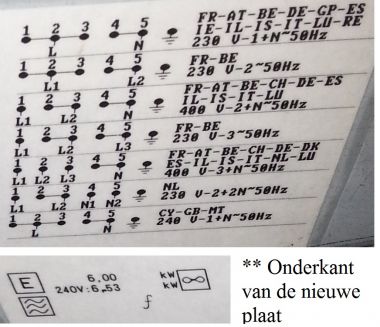 1 2 3 4 5
L N
FR-AT-BE-DE-GP-ES
IE-IL-IS-IT-LU-RE
230 V-1+N~50Hz
1 2 3 4 5
L1 L2
FR-BE
230 V-2~50Hz
1 2 3 4 5
L1 L2 N
FR-AT-BE-CH-DE-ES
IL-IS-IT-LU
400 V-2+N~50Hz
1 2 3 4 5
L1 L2 L3
FR-BE
230 V-3~50Hz
1 2 3 4 5
L1 L2 L3 N
FR-AT-BE-CH-DE-DK
ES-IL-IS-IT-NL-LU
400 V-3+N~50Hz
1 2 3 4 5
L1 L2 N1 N2
NL
230 V-2+2N~50Hz
1 2 3 4 5
L N
CY-GB-MT
240 V-1+N~50Hz
E
6.00
240V:6,53
f
kW
kW
** Onderkant
van de nieuwe
plaat